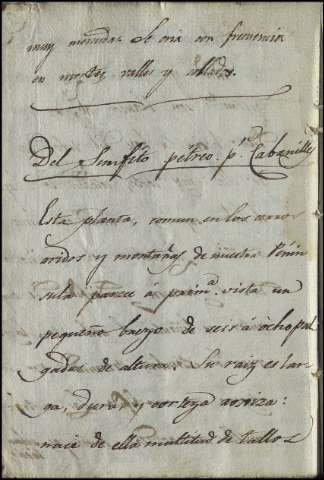 muy menudas. Se cria con frecuencia
en nuestros valles y collados.
Del Sinfito pétreo. pr. Cabanilles
Esta planta, comun en los cerros
aridos y montañas de nuestra Penin
sula parece á prima. vista un
pequeño brezo de seis á ocho pul
gadas de altura. Su raiz es lar-
ga, dura, y corteza rojiza:
nace de ella multitud de tallos